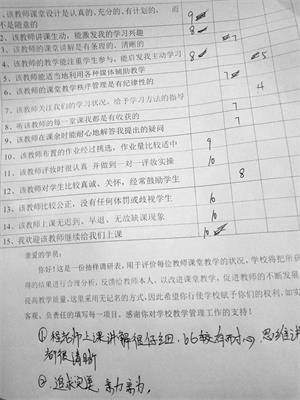 、该教师课堂设计是认真的、充分的,有计划的,而
不是随意的 9
2、该教师讲课生动,能激发我的学习兴趣 8 7
3、该教师的课堂讲解是有条理的、清晰的
4、该教师的教学能注重学生参与,能启发我主动学习 8 5
5、该教师能适当地利用各种媒体辅助教学 7
6、该教师的课堂教学秩序管理是有纪律性的 4
7、该教师关注我们的学习状况,给予学习方法的指导 7
8、听该教师的每一堂课我都是有收获的 7
9、该教师在课余时能耐心地解答我提出的疑问
10、该教师布置的作业经过挑选,作业量比较适中 9
11、该教师评妆时很认真 并做到一对一评妆实操 10
12、该教师对学生比较真诚、关怀,经常鼓励学生 8
13、该教师比较公正,没有任何体罚或歧视学生 10
14、该教师上课无迟到、早退、无故缺课现象 10
15、我欢迎该教师继续给我们上课 10
亲爱的学员:
你好!这是一份抽样调研表,用于评价每位教师课堂教学的状况,学校将把所获
得的结果进行合理分析,反馈给教师本人,以改进课堂教学,促进教师的不断发展
提高教学质量,这里采用无记名的方式,因此希望你行使学校赋予你们的权利,如实
客观、负责任的填写每一项目。感谢你对学校教学管理工作的支持!
① 程老师上课讲解很仔细,比较有耐心 思维
都很清晰
② 追求完美 亲力亲为。